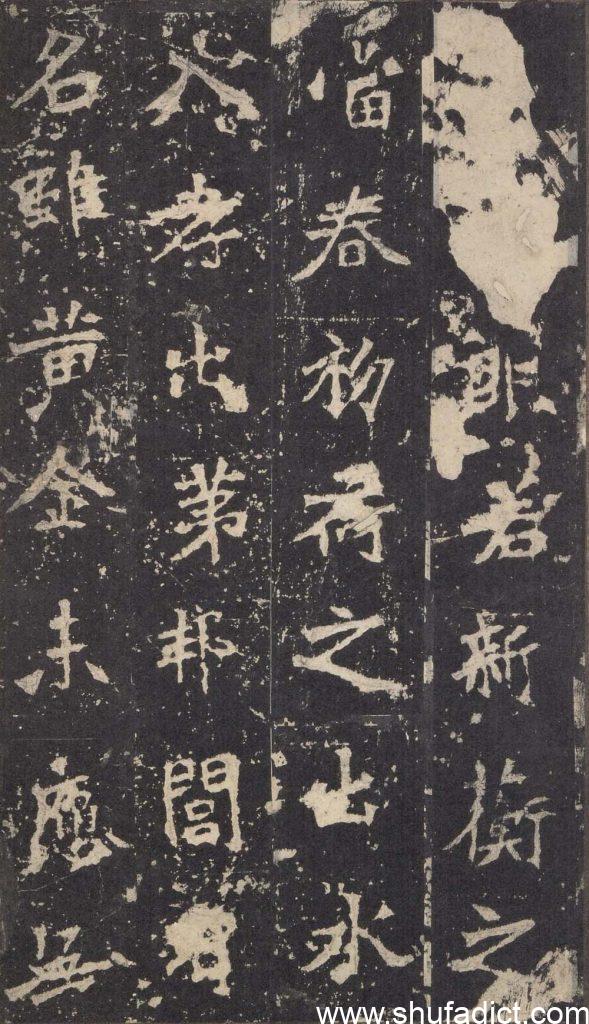 若新蘅之
當春初荷之出水
入孝出第邦閭有
名雖黃金未應無
www.shufadict.com